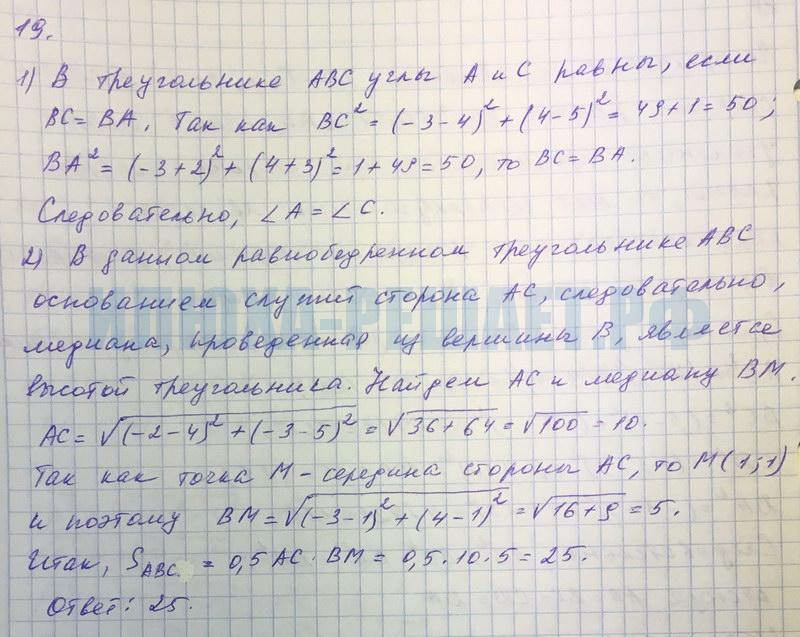 19.
1) В треугольнике ABC углы A и C равны, если
BC = BA. Так как BC² = (-3-4)² + (4-5)² = 49+1 = 50;
BA² = (-3+2)² + (4+3)² = 1+49 = 50, то BC = BA.
Следовательно, ∠A = ∠C.
2) В данном равнобедренном треугольнике ABC
основанием служит сторона AC, следовательно,
ИЛЮХА-РЕШАЕТ.РФ
медиана, проведенная из вершины B, является
высотой треугольника. Найдем AC и медиану BM.
AC = √((-2-4)² + (-3-5)²) = √(36+64) = √100 = 10.
Так как точка M - середина стороны AC, то M(1;1)
и поэтому BM = √((-3-1)² + (4-1)²) = √(16+9) = 5.
Итак, S_ABC = 0,5 AC · BM = 0,5 · 10 · 5 = 25.
Ответ: 25.